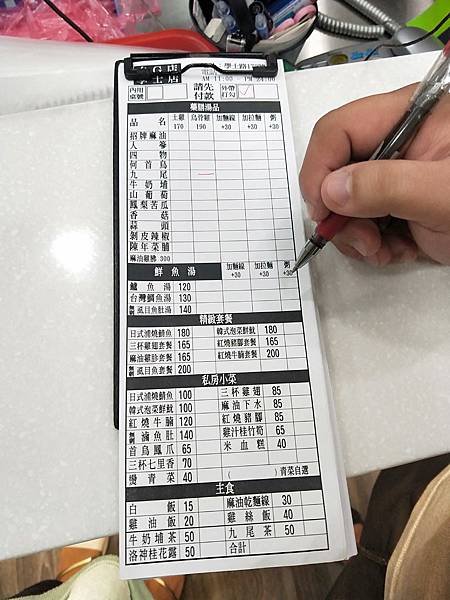 學士店
電話
AM 11:00 PM 21:00
內用 桌號 請先付款 外帶打勾
藥膳湯品
品名 土雞 170 烏骨雞 190 加麵線 +30 加拉麵 +30 粥 +30
招牌麻油
人蔘
四物
何首烏
九尾
牛奶埔
山葡萄
鳳梨苦瓜
香菇
蒜頭
剝皮辣椒
陳年菜脯
麻油雞腰 300
鮮魚湯 加麵線 +30 加拉麵 +30 粥 +30
鱸魚湯 120
台灣鯛魚湯 130
無刺虱目魚肚湯 140
精緻套餐
日式浦燒鯖魚 180 韓式泡菜鮮魷 180
三杯雞翅套餐 165 紅燒豬腳套餐 165
麻油雞胗套餐 165 紅燒牛腩套餐 200
無刺虱目魚套餐 200
私房小菜
日式浦燒鯖魚 100 三杯雞翅 85
韓式泡菜鮮魷 100 麻油下水 85
紅燒牛腩 120 紅燒豬腳 85
無刺滷魚肚 140 雞汁桂竹筍 65
首烏鳳爪 65 米血糕 40
三杯七里香 70
燙青菜 40 ( )青菜自選
主食
白飯 15 麻油乾麵線 30
雞油飯 20 雞絲飯 40
牛奶埔茶 50 九尾茶 50
洛神桂花露 50 合計